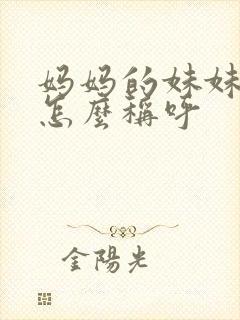 妈妈的妹妹
怎麼稱呼
金陽光